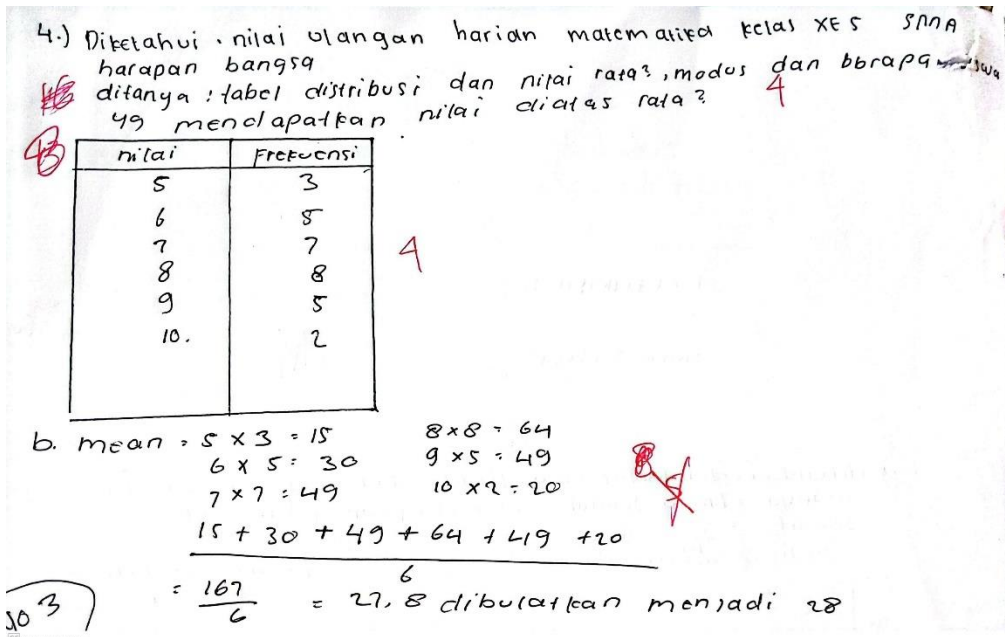 4.) Diketahui . nilai ulangan harian matematika kelas XE 5 SMA
harapan bangsa
ditanya : tabel distribusi dan nilai rata², modus dan bbrapa
yg mendapatkan nilai diatas rata²
4
nilai Frekuensi
5 3
6 5
7 7
8 8
9 5
10. 2
4
b. mean = 5 x 3 = 15 8x8 = 64
6 x 5 = 30 9 x5 = 49
7 x 7 = 49 10 x2 = 20
15 + 30 + 49 + 64 + 49 +20
6
= 167 = 27,8 dibulatkan menjadi 28
6
no 3